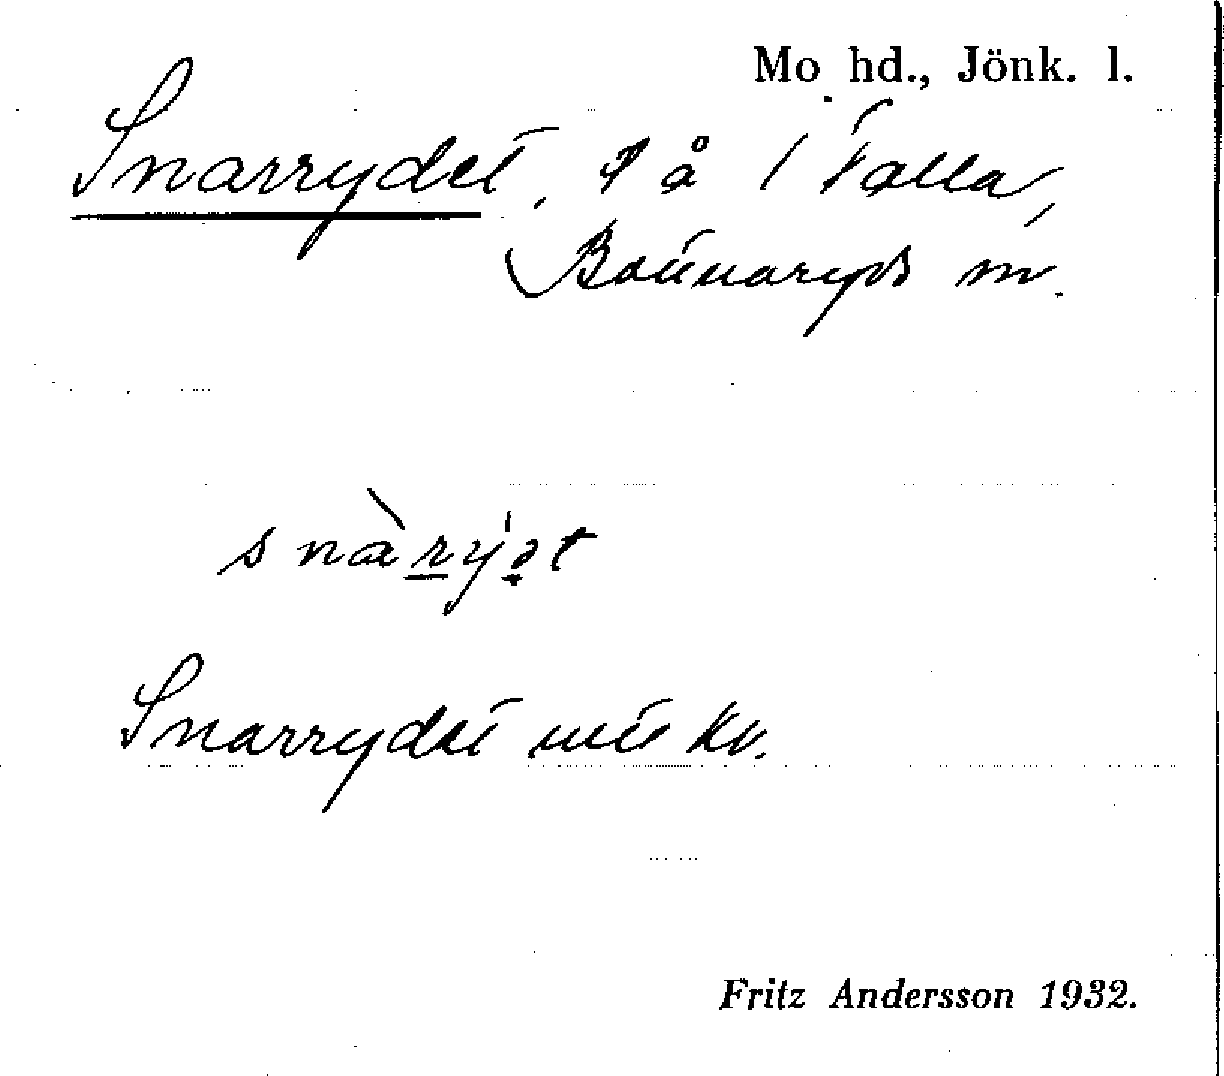 Mo hd., Jönk. l.
Snarrydet, på
Bottnaryds sn.
snàrýət
Snarrydet
Fritz Andersson 1932.